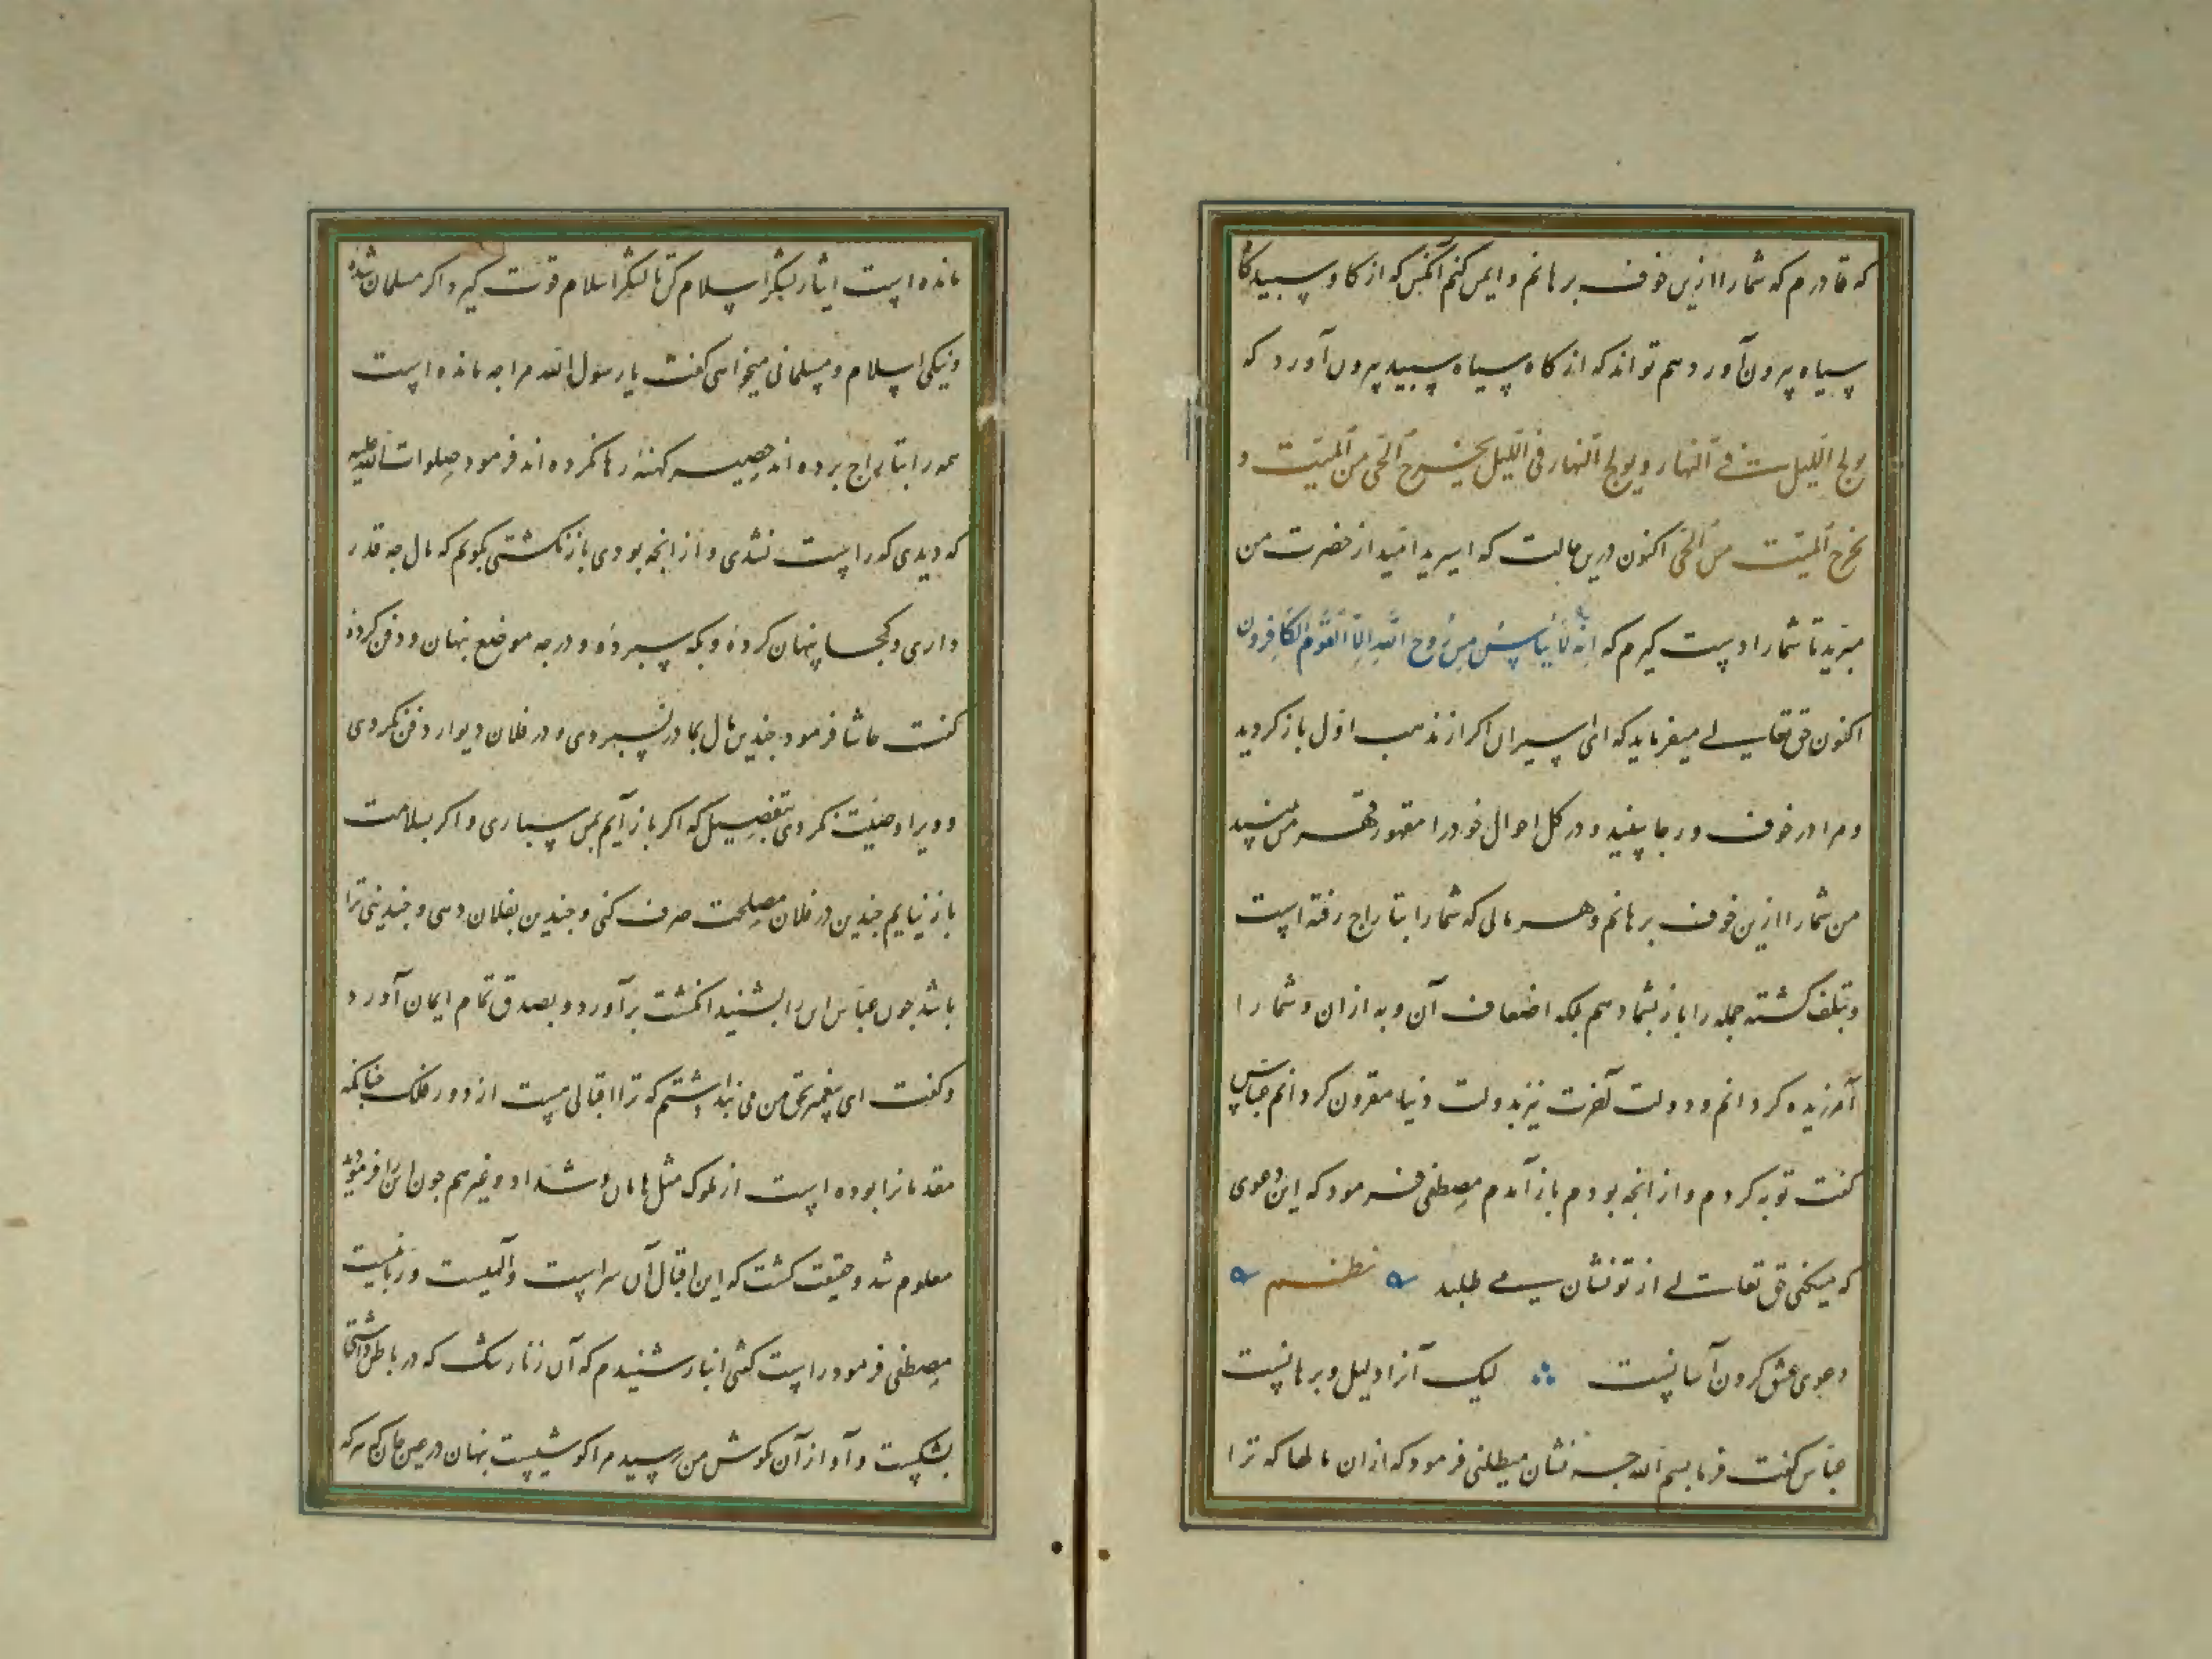 که قادرم که شما را ازین خوف برهانم و ایمن کنم آنکس که از کاو سپید کا
سیاه بیرون آورد هم تواند که از کاه سیاه سپید بیرون آورد که
یولج اللیل فی النهار و یولج النهار فی اللیل یخرج الحی من المیت و
یخرج المیت من الحی اکنون درین حالت که اسیرید امید از حضرت من
مبرید تا شما را دست کیرم که انه لا ییاس من روح الله الا القوم الکافرون
اکنون حق تعالی میفرماید که ای اسیران اکر از مذهب اول باز کردید
و مرا در خوف و رجا ببینید و در کل احوال خود را مقهور قهر من بینید
من شما را ازین خوف برهانم و هر مالی که شما را بتاراج رفته است
و تلف کشته جمله را باز بشما دهم بلکه اضعاف آن و به از آن و شما را
آمرزیده کردانم و دولت آخرت نیز بدولت دنیا مقرون کردانم عباس
کفت توبه کردم و از انجه بودم باز آمدم مصطفی فرمود که این دعوی
که میکنی حق تعالی از تو نشان می طلبد نظم
دعوی عشق کردن آسانست لیک آنرا دلیل و برهانست
عباس کفت فرما بسم الله جه نشان میطلبی فرمود که از ان مالها که ترا
مانده است ایثار لشکر اسلام کن تا لشکر اسلام قوت کیرد اکر مسلمان شده
و نیکی اسلام و مسلمانی میخواهی کفت یا رسول الله مرا جه مانده است
همه را بتاراج برده اند حصیر کهنه رها نکرده اند فرمود صلوات الله علیه
که دیدی که راست نشدی و از انجه بودی باز نکشتی بکویم که مال جه قدر
داری و کجا پنهان کردهٔ و بکه سپردهٔ و در جه موضع پنهان و دفن کردهٔ
کفت حاشا فرمود جندین مال بمادر نسپردی و در فلان دیوار دفن نکردی
و ویرا وصیت نکردی بتفصیل که اکر باز آیم بمن سپاری و اکر بسلامت
باز نیایم جندین در فلان مصلحت صرف کنی و جندین بفلان دهی و جندینی ترا
باشد جون عباس این را بشنید انکشت برآورد و بصدق تمام ایمان آورد
و کفت ای پیغمبر بحق من می پنداشتم که ترا اقبالی هست از دور فلک جنانکه
مقدمانرا بوده است از ملوک مثل هامان و شداد و غیرهم جون این را فرمودی
معلوم شد و حقیقت کشت که این اقبال آن سراست و الهیست و ربانیست
مصطفی فرمود راست کفتی این بار شنیدم که آن زنار شک که در باطن داشتی
بشکست و آواز آن بکوش من رسید مرا کوشیست پنهان در عین جان که هرکه